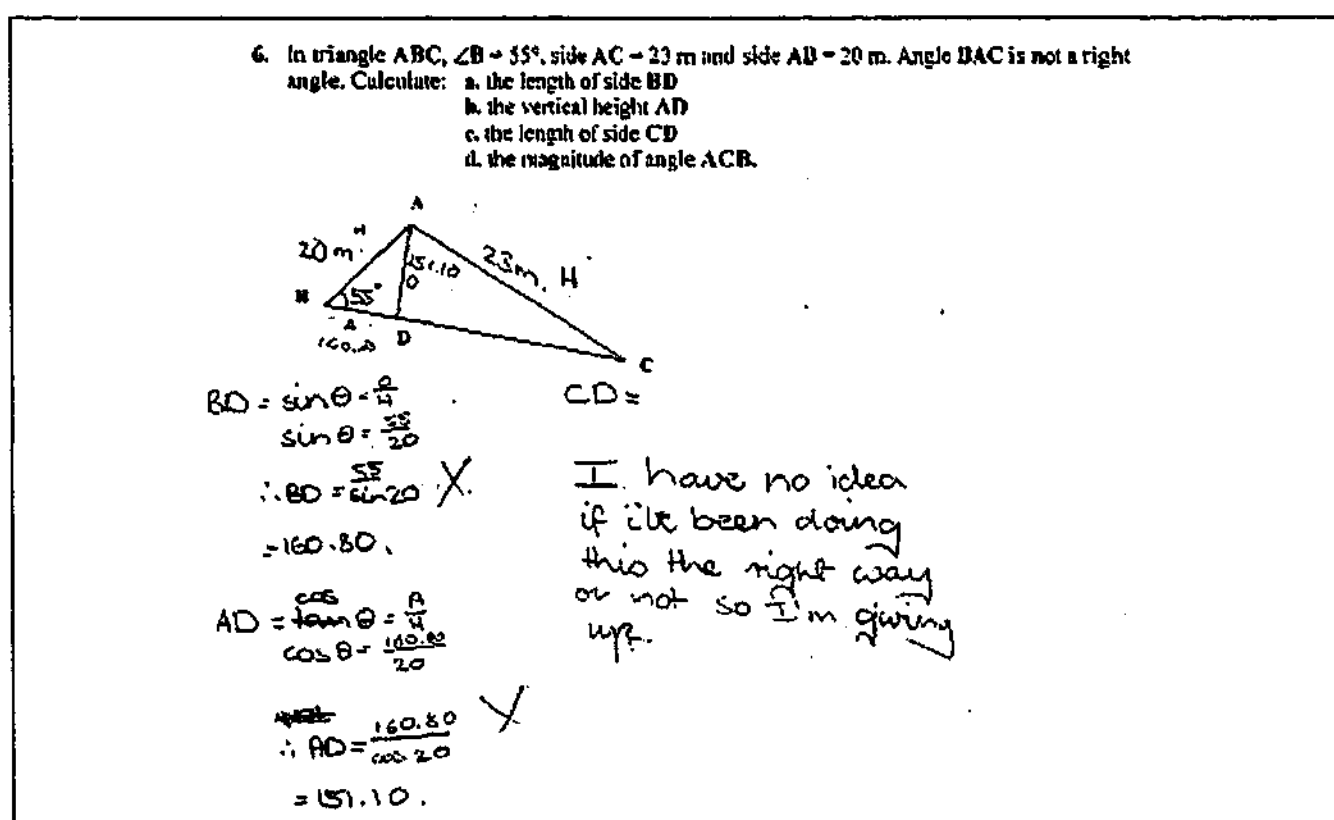 6. In triangle ABC, ∠B = 55°, side AC = 23 m and side AB = 20 m. Angle BAC is not a right
angle. Calculate: a. the length of side BD
b. the vertical height AD
c. the length of side CD
d. the magnitude of angle ACB.
A
20 m. H
151.10
O
23m. H
B
55°
A
160.80
D
C
BD = sin θ = O/H
sin θ = 55/20
∴ BD = 55/sin 20 X.
= 160.80.
AD = cos θ = A/H
cos θ = 160.80/20
∴ AD = 160.80/cos 20 X
= 151.10.
CD =
I have no idea
if i've been doing
this the right way
or not so I'm giving
up.